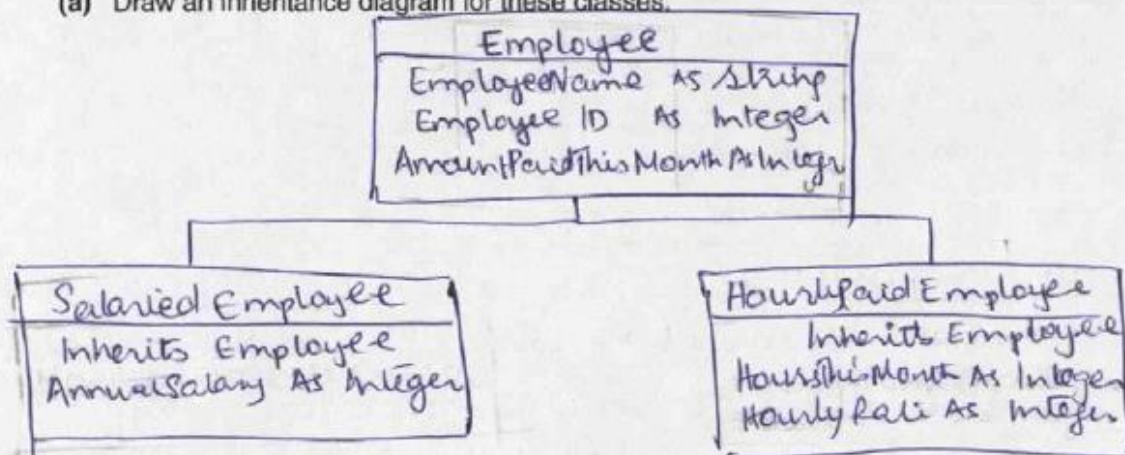 (a) Draw an inheritance diagram for these classes.
Employee
EmployeeName As String
Employee ID As Integer
AmountPaidThisMonth As Integr
Salaried Employee
Inherits Employee
AnnualSalary As Integer
HourlyPaid Employee
Inherits Employee
HoursThisMonth As Integer
Hourly Rate As Integer